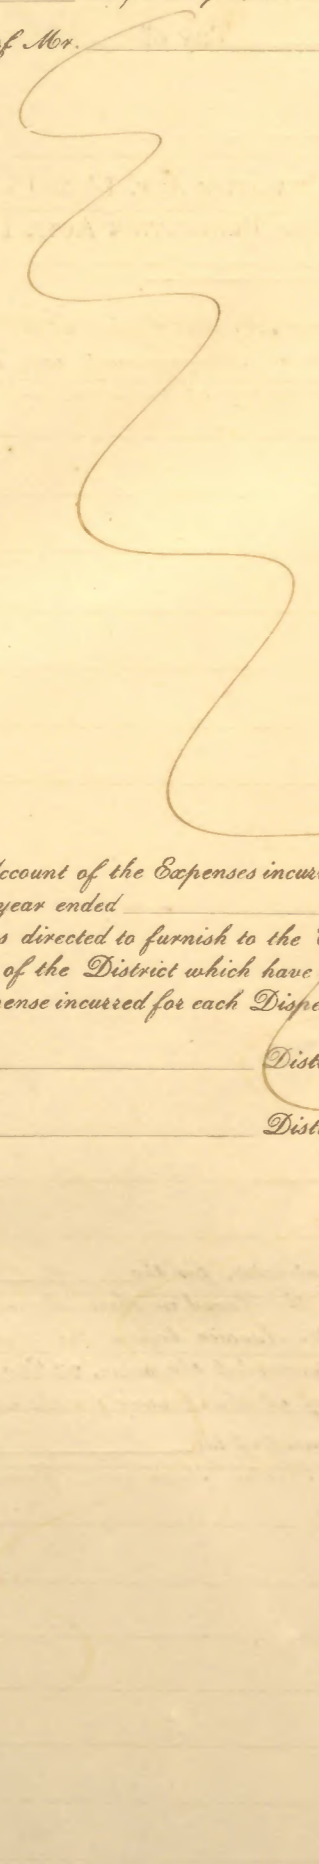 of Mr.
Account of the Expenses incur
year ended
s directed to furnish to the
of the District which have
pense incurred for each Dispe
Dist
Dist